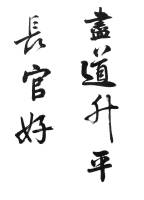 盡道升平
長官好